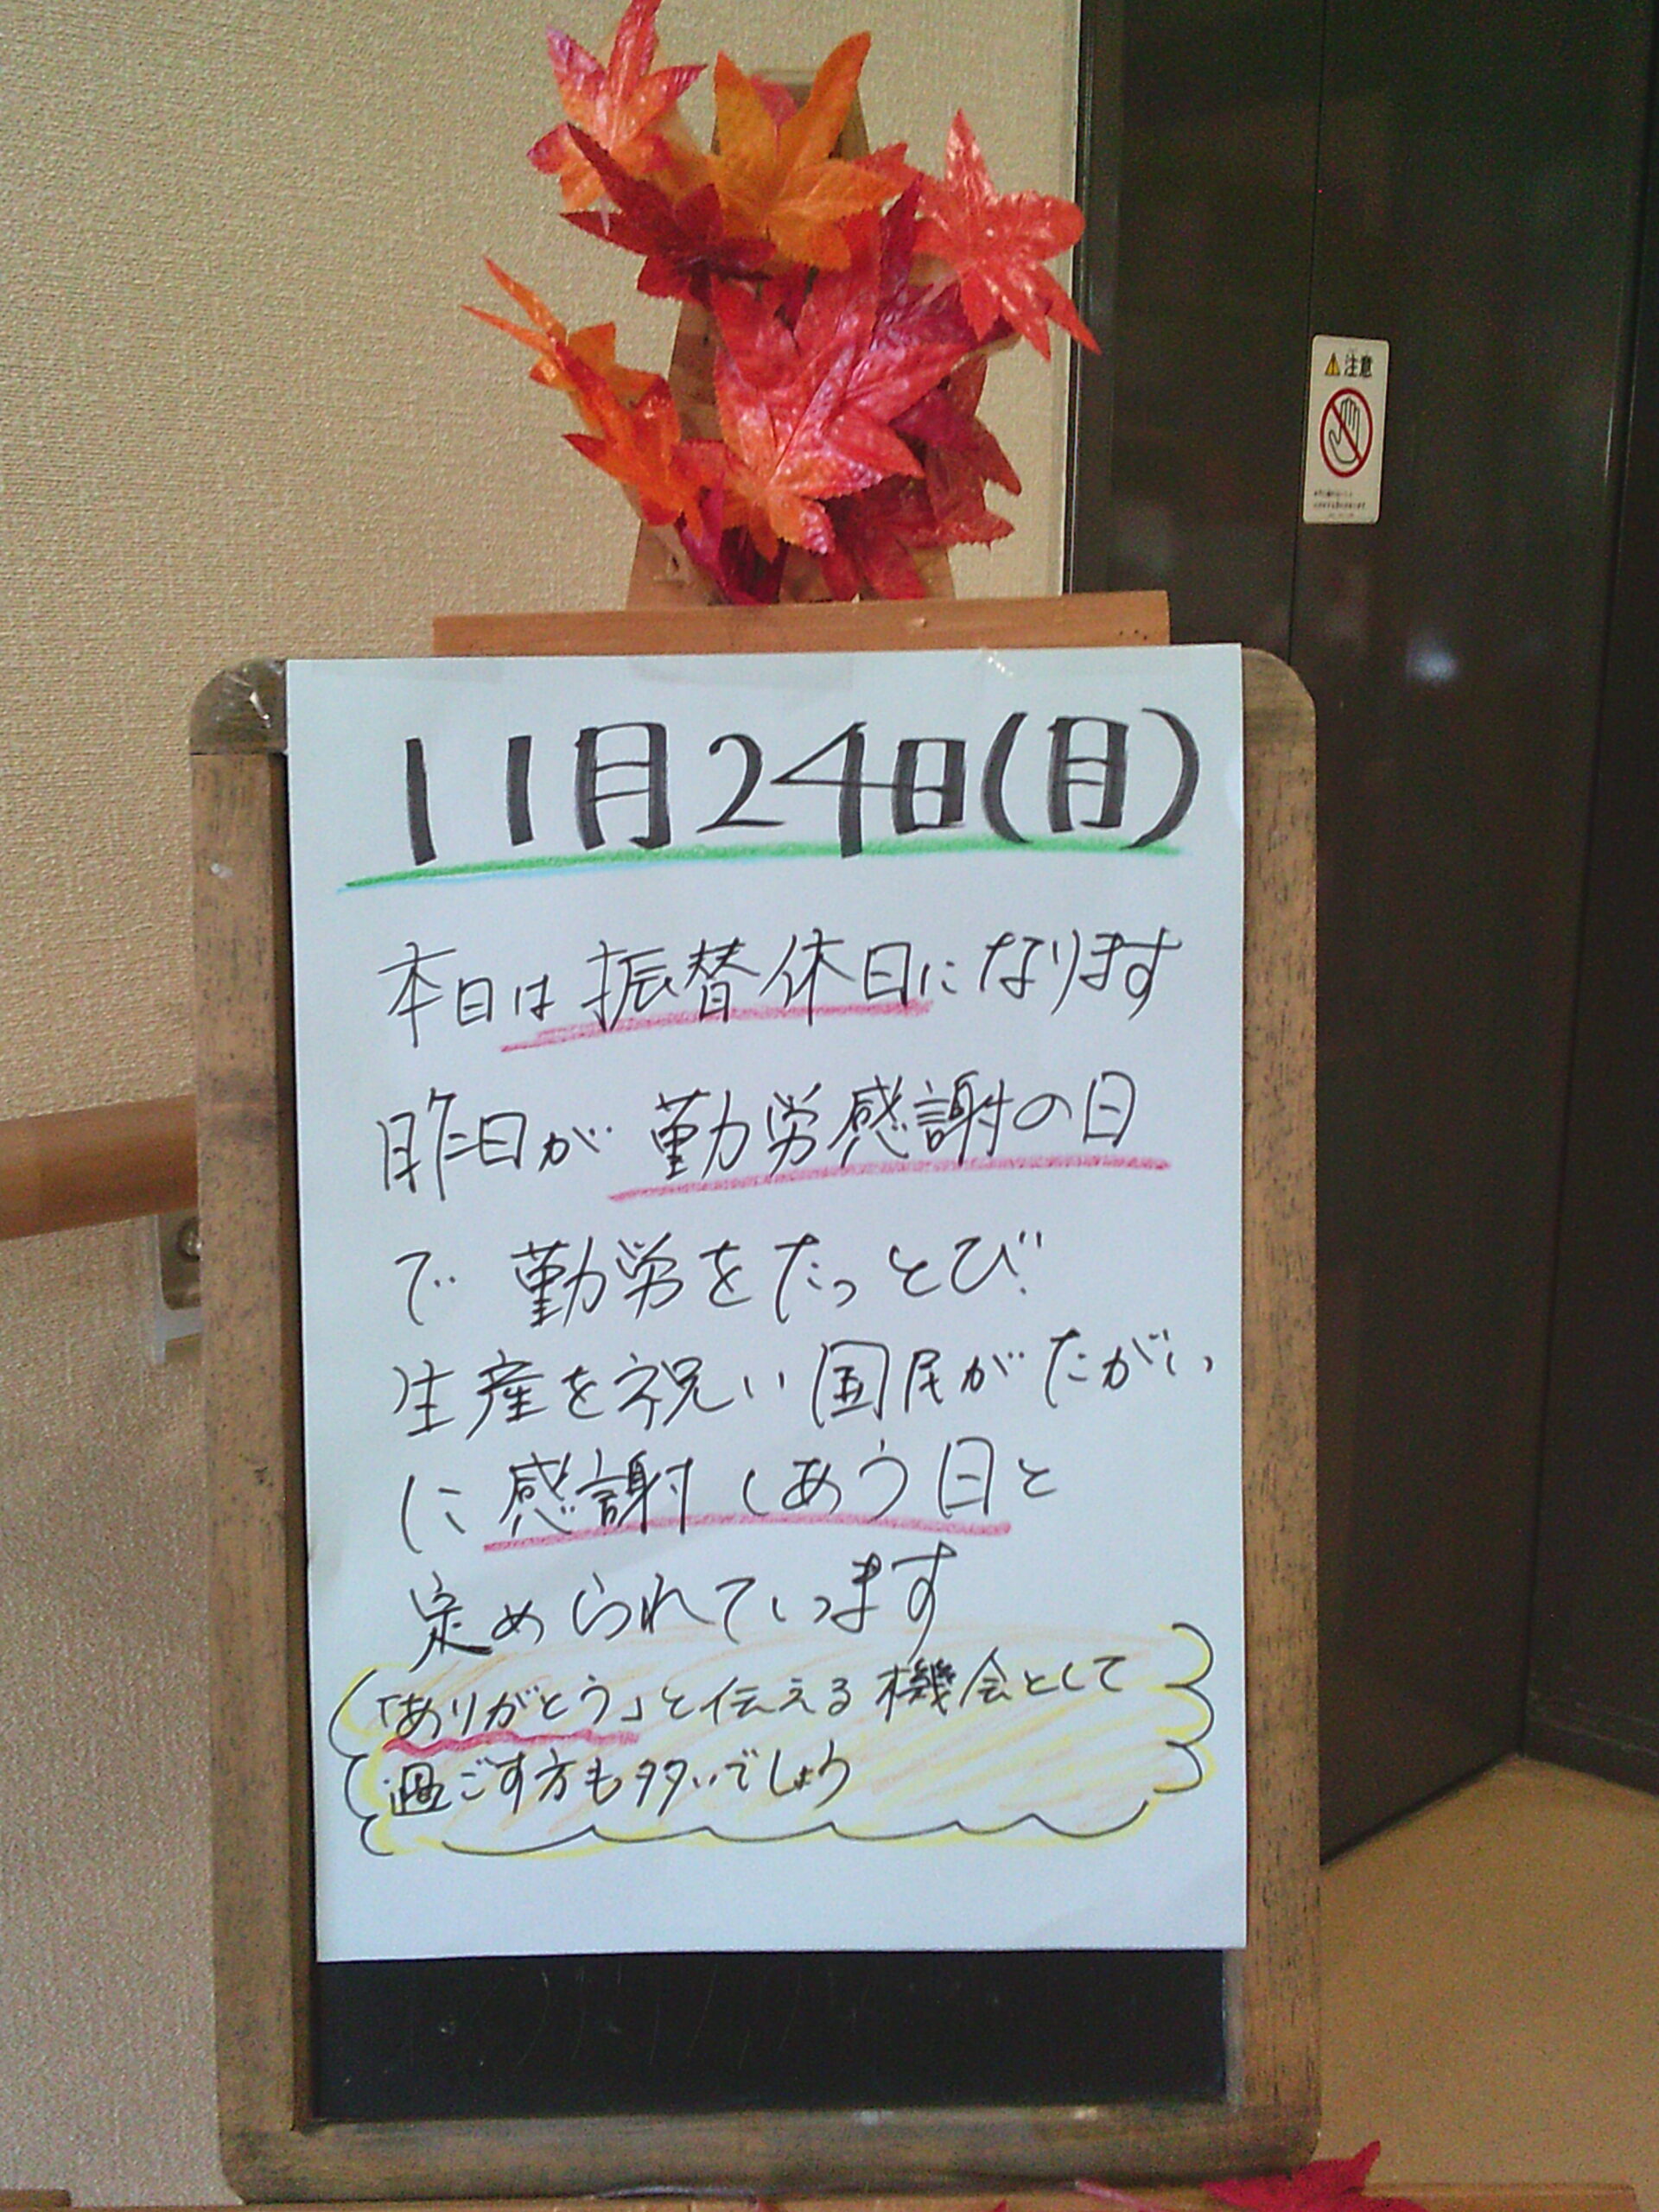 注意
11月24日(月)
本日は振替休日になります
昨日が勤労感謝の日
で勤労をたっとび
生産を祝い国民がたがい
に感謝しあう日と
定められています
「ありがとう」と伝える機会として
過ごす方も多いでしょう